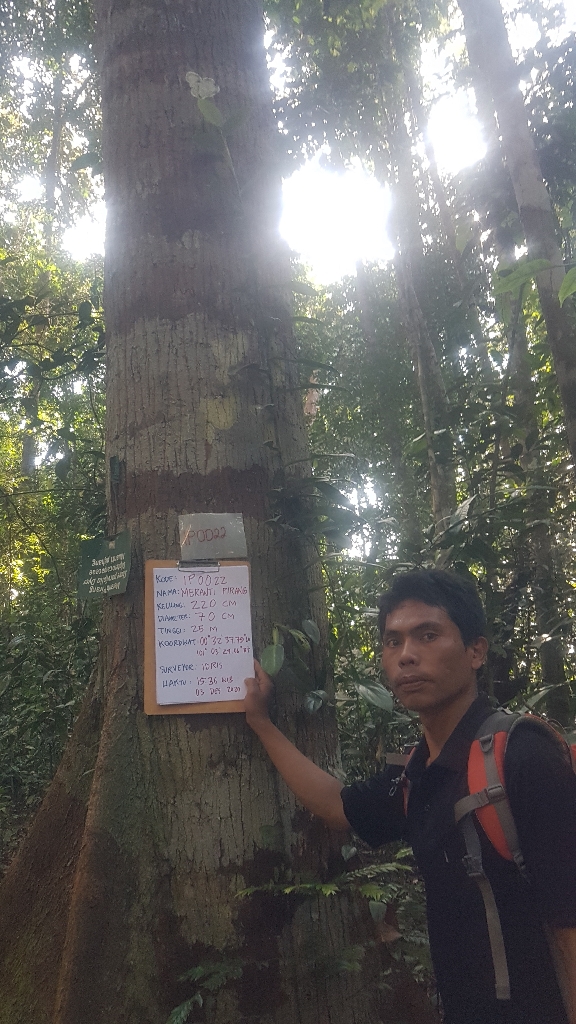 IP0022
KODE: IP0022
NAMA: MERANTI
KELILING: 220 CM
DIAMETER: 70 CM
TINGGI: 25 M
KOORDINAT: 00° 32'
SURVEYOR: IDRIS
WAKTU: 15:36 WIB
03 DES 2020